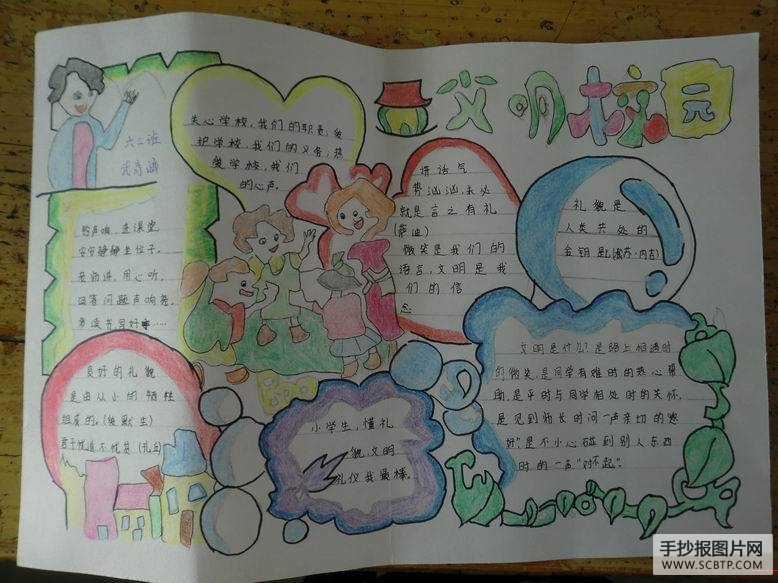 文明校园
六二班
关心学校,我们的职责;爱
护学校,我们的义务;热
爱学校,我们
的心声。
讲话气
势汹汹,未必
就是言之有礼
(萨迪)
微笑是我们的
语言,文明是我
们的信
念
礼貌是
人类共处的
金钥匙(松苏·内吉)
铃声响,进课堂
安安静静坐位子。
老师进,用心听,
回答问题声响亮,
勇读书写好字……
良好的礼貌
是由从小的牺牲
组成的。(爱默生)
君子忧道不忧贫(孔丘)
小学生,懂礼
貌,文明
礼仪我最棒。
文明是什么?是路上相遇时
的微笑,是同学有难时的热心帮
助,是平时与同学相处时的关怀,
是见到师长时问一声亲切的您
好"是不小心碰到别人东西
时的一声"对不起"。
手抄报图片网
WWW.SCBTP.COM